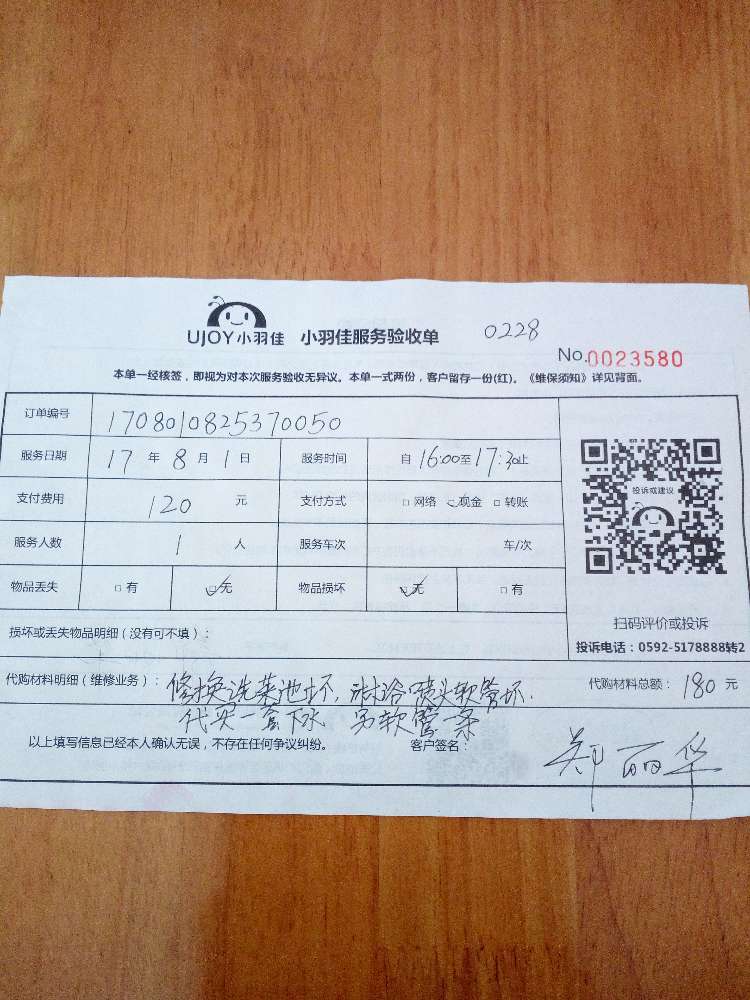 UJOY小羽佳 小羽佳服务验收单 0228
No.0023580
本单一经核签，即视为对本次服务验收无异议。本单一式两份，客户留存一份(红)。《维保须知》详见背面。
订单编号 1708010825370050
服务日期 17 年 8 月 1 日 服务时间 自 16:00至 17:30止
支付费用 120 元 支付方式 □网络 现金 □转账
投诉或建议
服务人数 1 人 服务车次 车/次
物品丢失 □有 □无 物品损坏 □无 □有
扫码评价或投诉
损坏或丢失物品明细（没有可不填）：
投诉电话：0592-5178888转2
代购材料明细（维修业务）：修换洗菜池坏，淋浴喷头软管坏.
代购材料总额：180元
代买一套下水 另软管一条
以上填写信息已经本人确认无误，不存在任何争议纠纷。 客户签名：郑丽华